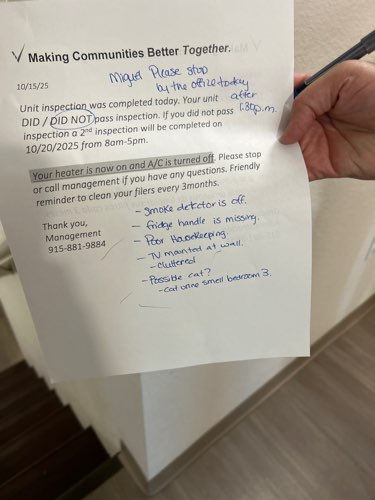 ✓ Making Communities Better Together.
Miguel Please stop
by the office today
after
1:30p.m.
10/15/25
Unit inspection was completed today. Your unit
DID / DID NOT pass inspection. If you did not pass
inspection a 2nd inspection will be completed on
10/20/2025 from 8am-5pm.
Your heater is now on and A/C is turned off. Please stop
or call management if you have any questions. Friendly
reminder to clean your filers every 3months.
Thank you,
Management
915-881-9884
- Smoke detector is off.
- fridge handle is missing.
- Poor Housekeeping.
- TV mounted at wall.
- cluttered
- Possible cat?
- cat urine smell bedroom 3.